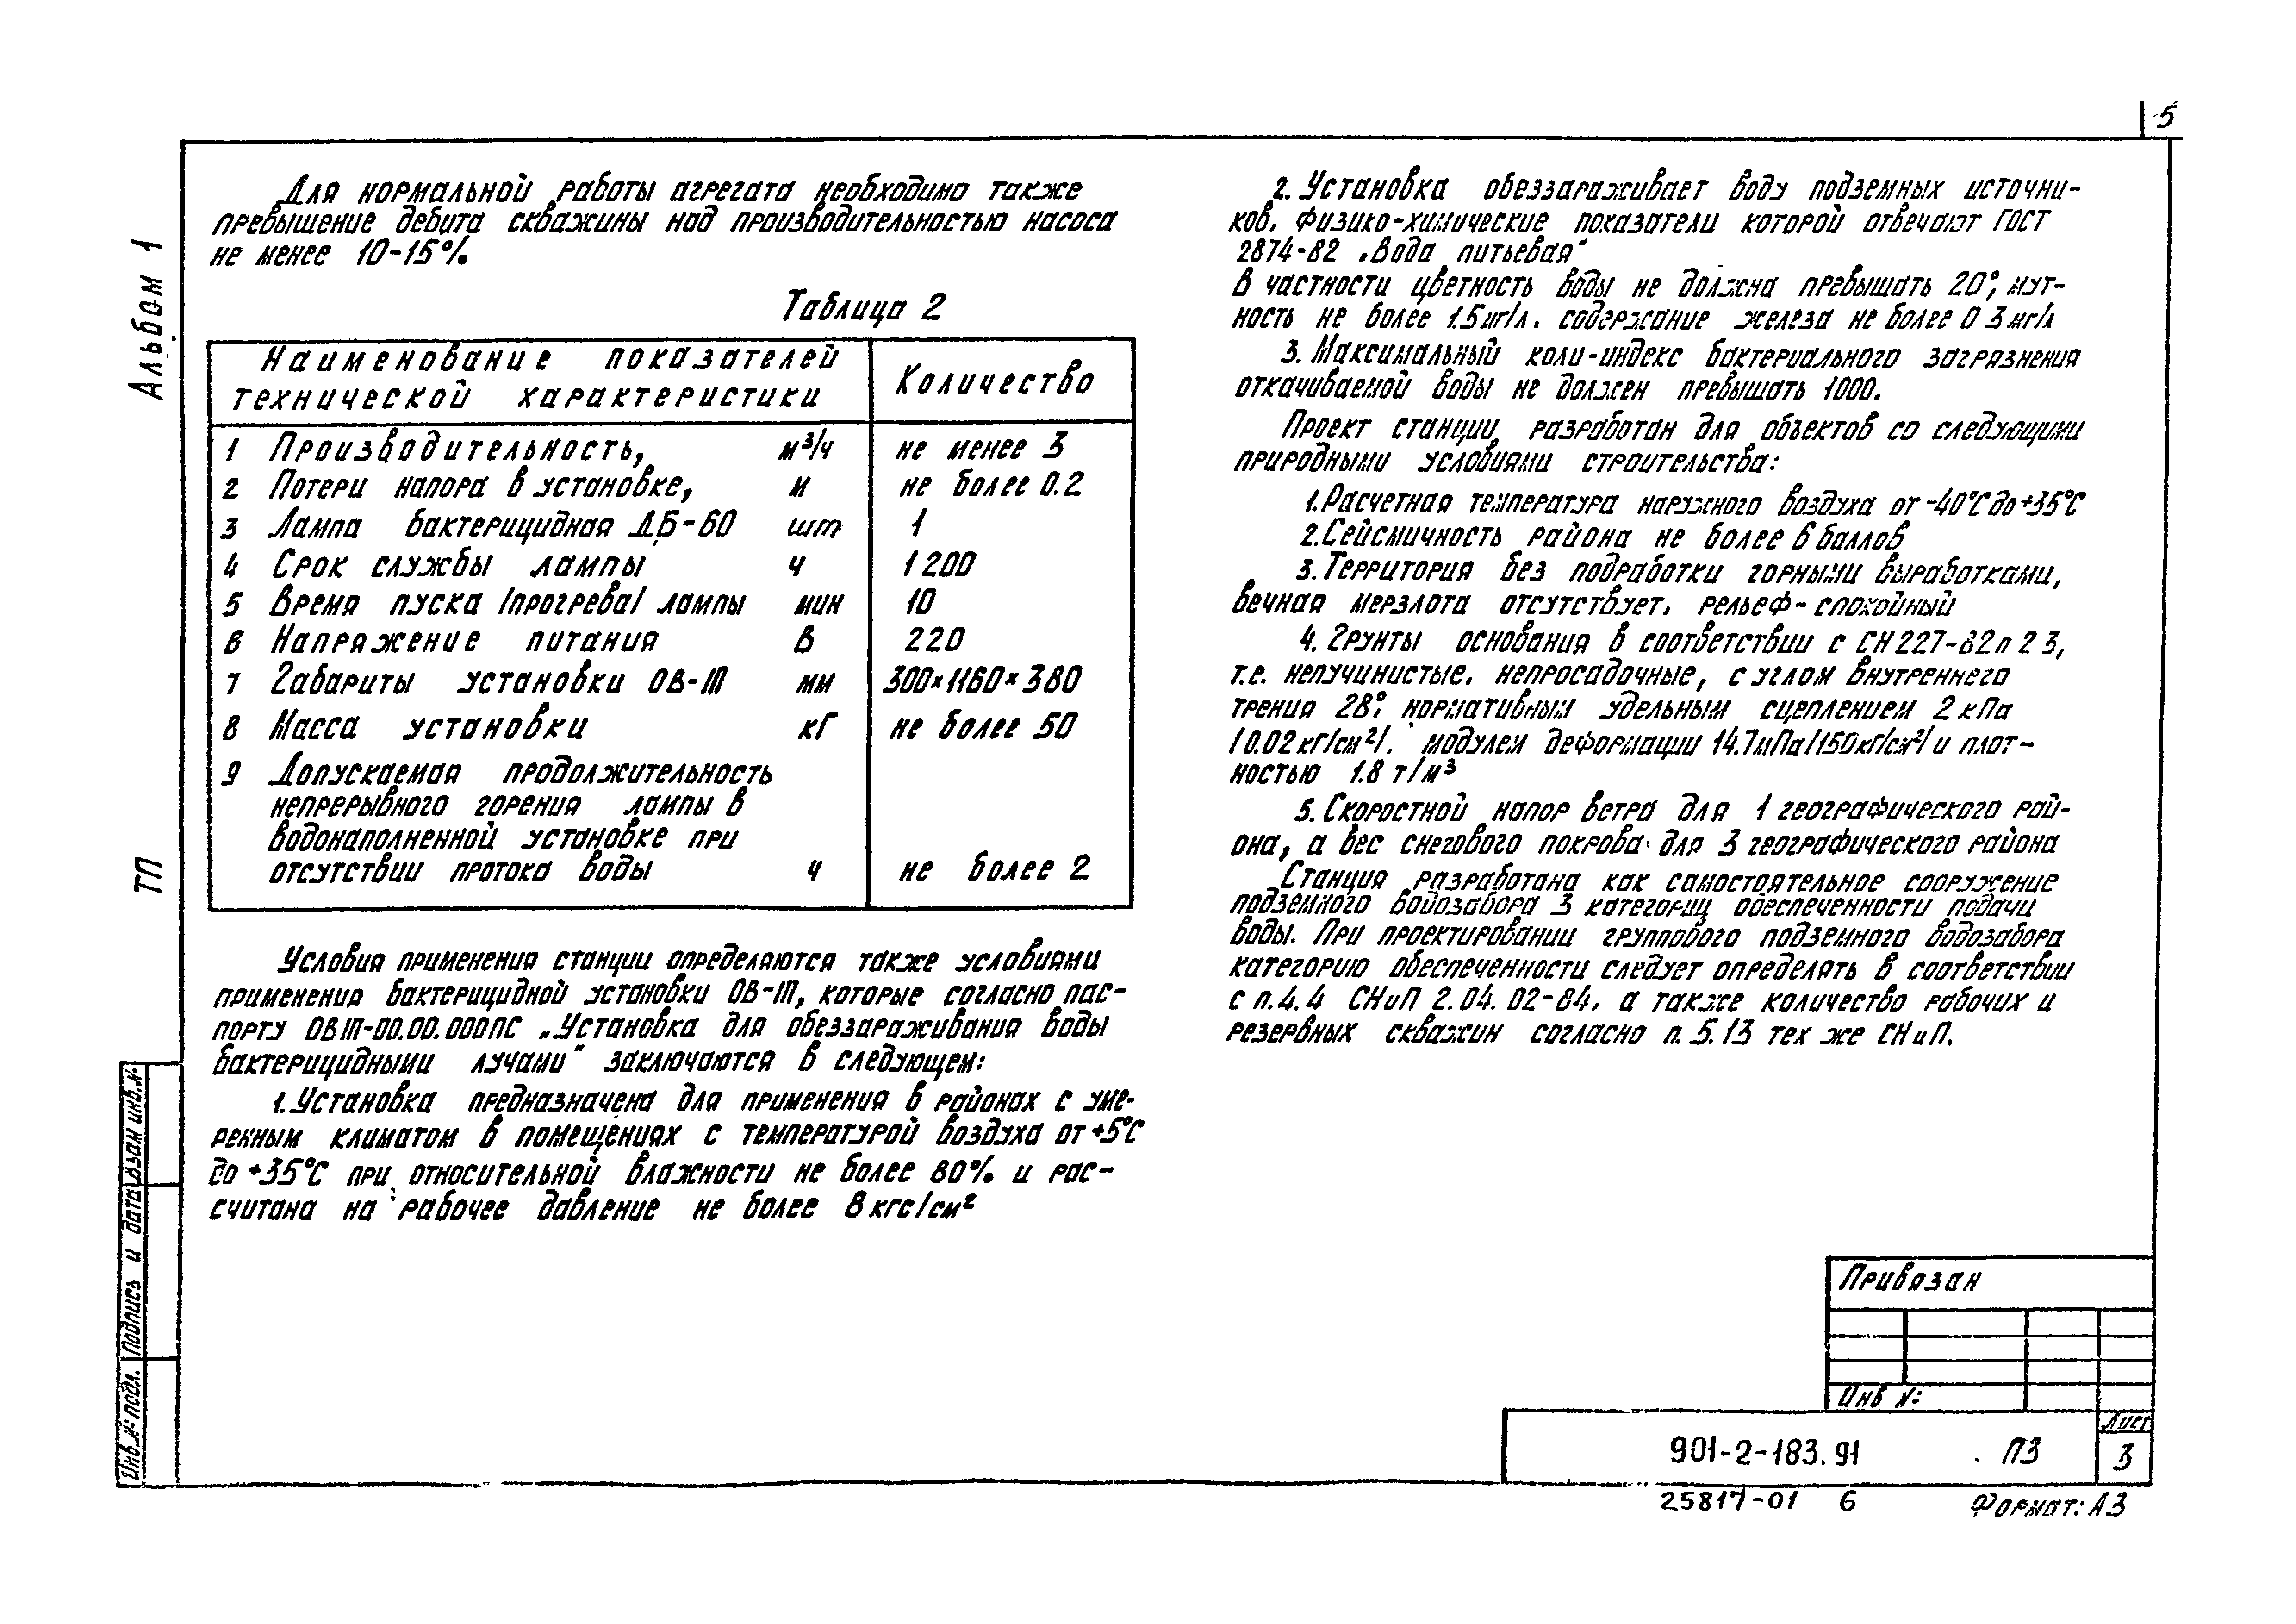 5
Альбом 1
ТП
Для нормальной работы агрегата необходимо также
превышение дебита скважины над производительностью насоса
не менее 10-15%.
Таблица 2
Наименование показателей
технической характеристики
Количество
1 Производительность, м³/ч не менее 3
2 Потери напора в установке, м не более 0.2
3 Лампа бактерицидная ДБ-60 шт 1
4 Срок службы лампы ч 1200
5 Время пуска /прогрева/ лампы мин 10
6 Напряжение питания В 220
7 Габариты установки ОВ-1П мм 300×1160×380
8 Масса установки кг не более 50
9 Допускаемая продолжительность
непрерывного горения лампы в
водонаполненной установке при
отсутствии протока воды ч не более 2
Условия применения станции определяются также условиями
применения бактерицидной установки ОВ-1П, которые согласно пас-
порту ОВ1П-00.00.000ПС „Установка для обеззараживания воды
бактерицидными лучами" заключаются в следующем:
1. Установка предназначена для применения в районах с уме-
ренным климатом в помещениях с температурой воздуха от +5°С
до +35°С при относительной влажности не более 80% и рас-
считана на рабочее давление не более 8 кгс/см²
2. Установка обеззараживает воду подземных источни-
ков, физико-химические показатели которой отвечают ГОСТ
2874-82 „Вода питьевая"
В частности цветность воды не должна превышать 20°, мут-
ность не более 1.5 мг/л. содержание железа не более 0 3 мг/л
3. Максимальный коли-индекс бактериального загрязнения
откачиваемой воды не должен превышать 1000.
Проект станции разработан для объектов со следующими
природными условиями строительства:
1. Расчетная температура наружного воздуха от -40°С до +35°С
2. Сейсмичность района не более 6 баллов
3. Территория без подработки горными выработками,
вечная мерзлота отсутствует. рельеф- спокойный
4. Грунты основания в соответствии с СН 227-82 п 2 3,
т.е. непучинистые. непросадочные, с углом внутреннего
трения 28°, нормативным удельным сцеплением 2 кПа
/0.02 кг/см²/. модулем деформации 14.7 мПа /150кг/см²/ и плот-
ностью 1.8 т/м³
5. Скоростной напор ветра для 1 географического рай-
она, а вес снегового покрова для 3 географического района
Станция разработана как самостоятельное сооружение
подземного водозабора 3 категории обеспеченности подачи
воды. При проектировании группового подземного водозабора
категорию обеспеченности следует определять в соответствии
с п.4.4 СНиП 2.04.02-84, а также количество рабочих и
резервных скважин согласно п. 5.13 тех же СНиП.
Инв.№ подл. Подпись и дата Взам инв.№
Привязан
Инв №:
901-2-183.91 ПЗ
Лист
3
25817-01 6
Формат: А3